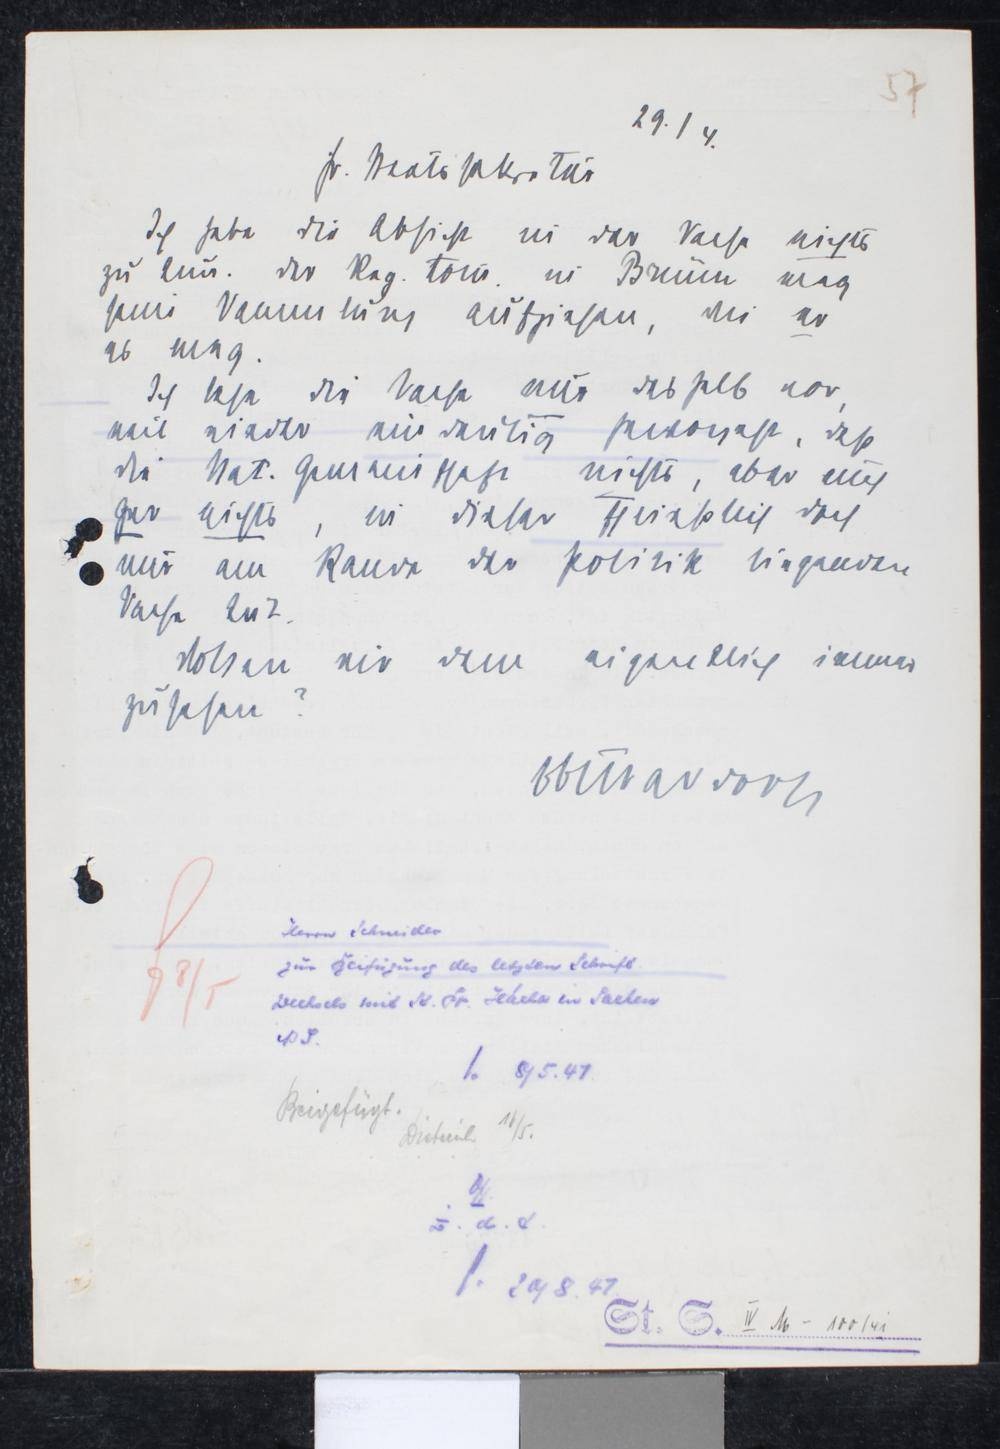 57
29./4.
Hr. Staatssekretär
Ich habe die Absicht in der Sache nichts
zu tun. Der Reg. Kom. in Brünn mag
seine Sammlung aufziehen, wie er
es mag.
Ich lege die Sache nur deshalb vor,
weil wieder eindeutig hervorgeht, daß
die Nat. Gemeinschaft nichts, aber auch
gar nichts, in dieser schließlich doch
nur am Rande der Politik liegenden
Sache tut.
Wollen wir dem eigentlich immer
zusehen?
8/5
Herrn Schneider
zur Beifügung des letzten Schrift
Wechsels mit St. Pr. Hácha in Sachen
NG.
8/5.41
Beigefügt.
Dietrich 10/5.
z. d. A.
20/8.41.
St. S. IV M - 100/41